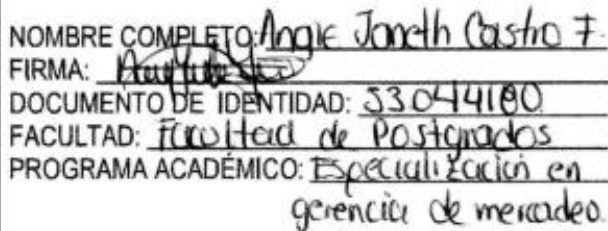 NOMBRE COMPLETO: Angie Janeth Castro F.
FIRMA:
DOCUMENTO DE IDENTIDAD: 53044180
FACULTAD: Facultad de Postgrados
PROGRAMA ACADÉMICO: Especialización en
gerencia de mercadeo.